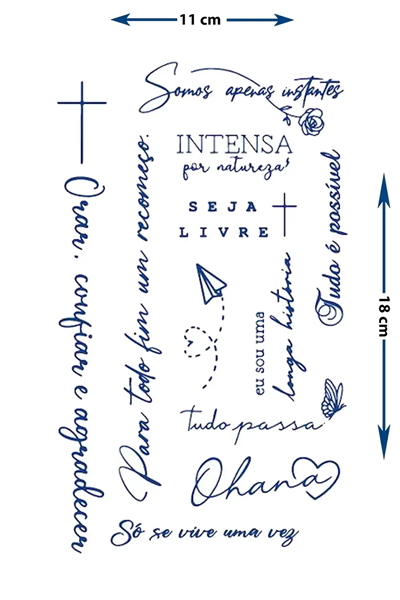 11 cm
Somos apenas instantes
INTENSA
por natureza
SEJA
LIVRE
Tudo é possível
Orar, confiar e agradecer
Para todo fim um recomeço.
eu sou uma
longa história
18 cm
tudo passa
Ohana
Só se vive uma vez